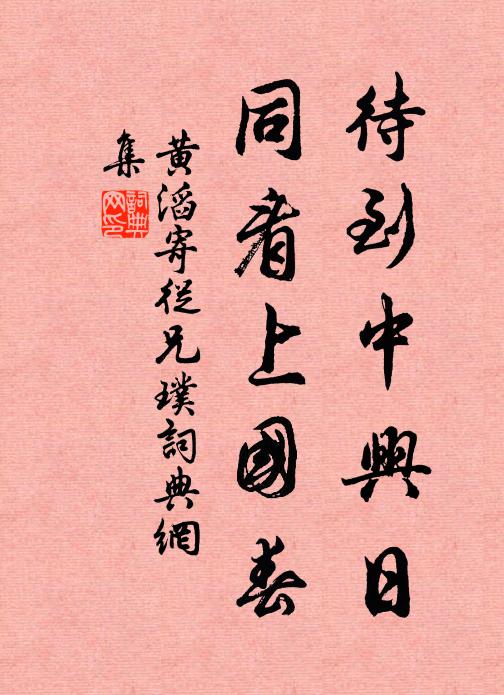 待到中興日
同看上國春
黃滔寄從兄璞詞典網
集
詞典
网印